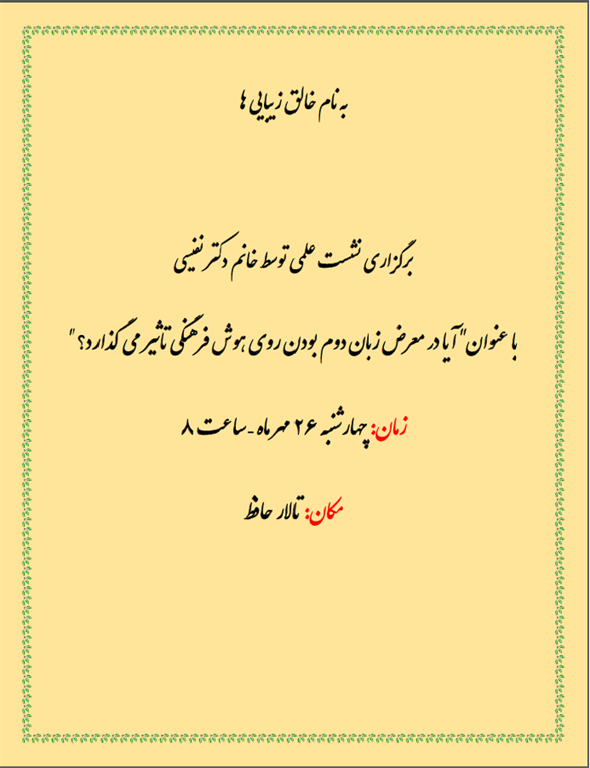 به نام خالق زیبایی ها
برگزاری نشست علمی توسط خانم دکتر نفیسی
با عنوان "آیا در معرض زبان دوم بودن روی هوش فرهنگی تاثیر می گذارد؟"
زمان: چهارشنبه ۲۶ مهرماه -ساعت ۸
مکان: تالار حافظ